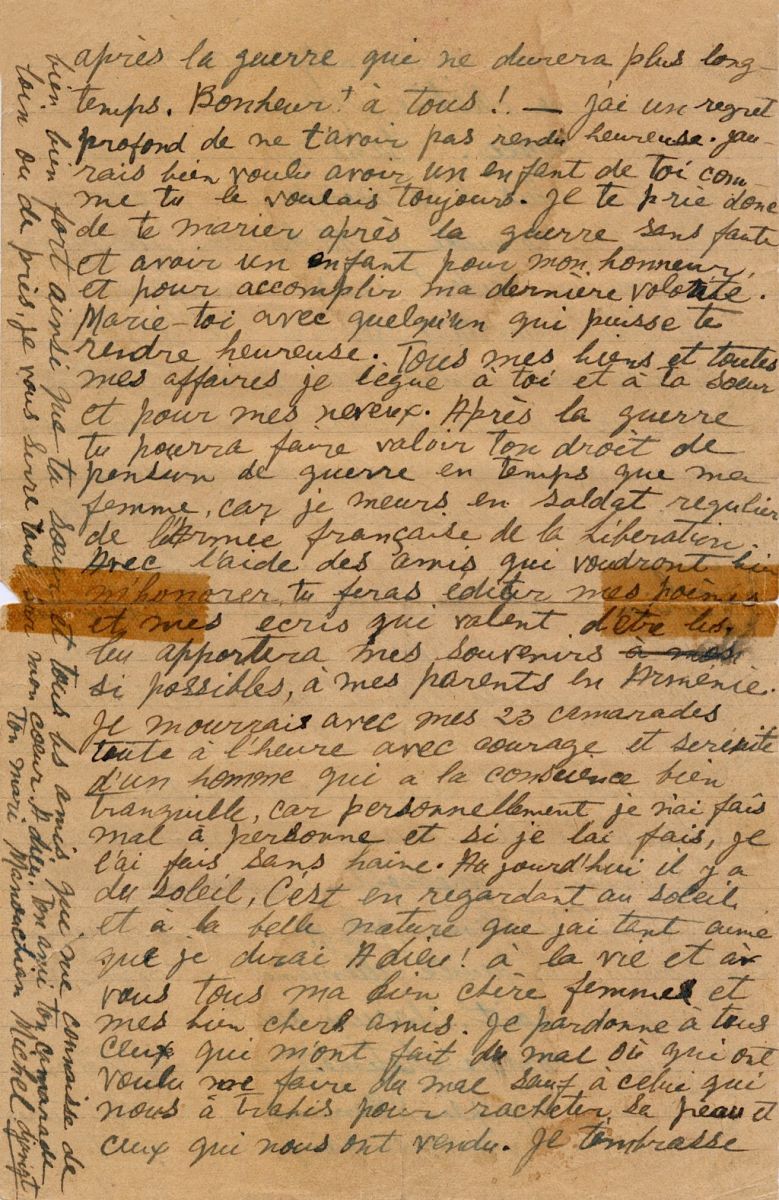 après la guerre qui ne durera plus long-
temps. Bonheur! à tous! — j'ai un regret
profond de ne t'avoir pas rendu heureuse. j'au-
rais bien voulu avoir un enfant de toi com-
me tu le voulais toujours. Je te prie donc
de te marier après la guerre sans faute
et avoir un enfant pour mon honneur,
et pour accomplir ma dernière volonté.
Marie-toi avec quelqu'un qui puisse te
rendre heureuse. Tous mes biens et toutes
mes affaires je lègue à toi et à ta sœur
et pour mes neveux. Après la guerre
tu pourra faire valoir ton droit de
pension de guerre en temps que ma
femme, car je meurs en soldat regulier
de l'Armée française de la Libération.
Avec l'aide des amis qui voudront bien
m'honorer, tu feras editer mes poèmes
et mes ecris qui valent d'être lus.
tu apportera mes souvenirs à mes
si possibles, à mes parents en Arménie.
Je mourrais avec mes 23 camarades
toute à l'heure avec courage et serénite
d'un homme qui a la conscience bien
tranquille, car personnellement je n'ai fais
mal à personne et si je l'ai fais, je
l'ai fais sans haine. Aujourd'hui il y a
du soleil, C'est en regardant au soleil
et à la belle nature que j'ai tant aimé
que je dirai Adieu! à la vie et à
vous tous ma bien chère femme et
mes bien chers amis. Je pardonne à tous
ceux qui m'ont fait du mal où qui ont
voulu me faire du mal sauf à celui qui
nous à trahis pour racheter sa peau et
ceux qui nous ont vendu. Je t'embrasse
bien bien fort ainsi que ta sœur et tous les amis que me connaisse de
loin ou de près, je vous serre tous sur mon cœur. Adieu. Ton ami ton camarade
ton mari Manouchian Michel